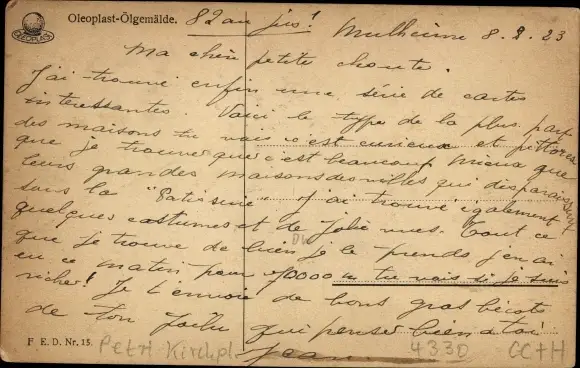 Oleoplast-Ölgemälde.
OLEOPLAST
82 au jus!
Mulheim 8.2.23
Ma chère petite choute.
J'ai trouvé enfin une série de cartes
intéressantes. Voici le type de la plus part
des maisons tu vois c'est curieux et pittores
que je trouve que c'est beaucoup mieux que
leurs grandes maisons des villes qui disparaissent
sous la "Patisserie" J'ai trouvé également
quelques costumes et de jolies vues. Tout ce
que je trouve de bien je le prends j'en ai
eu ce matin pour 70000 m tu vois si je suis
riche! Je t'envoie de bons gros bécots
de ton qui pense bien à toi
Jean
F. E. D. Nr. 15.
Petri Kirchpl.
4330
CC+H